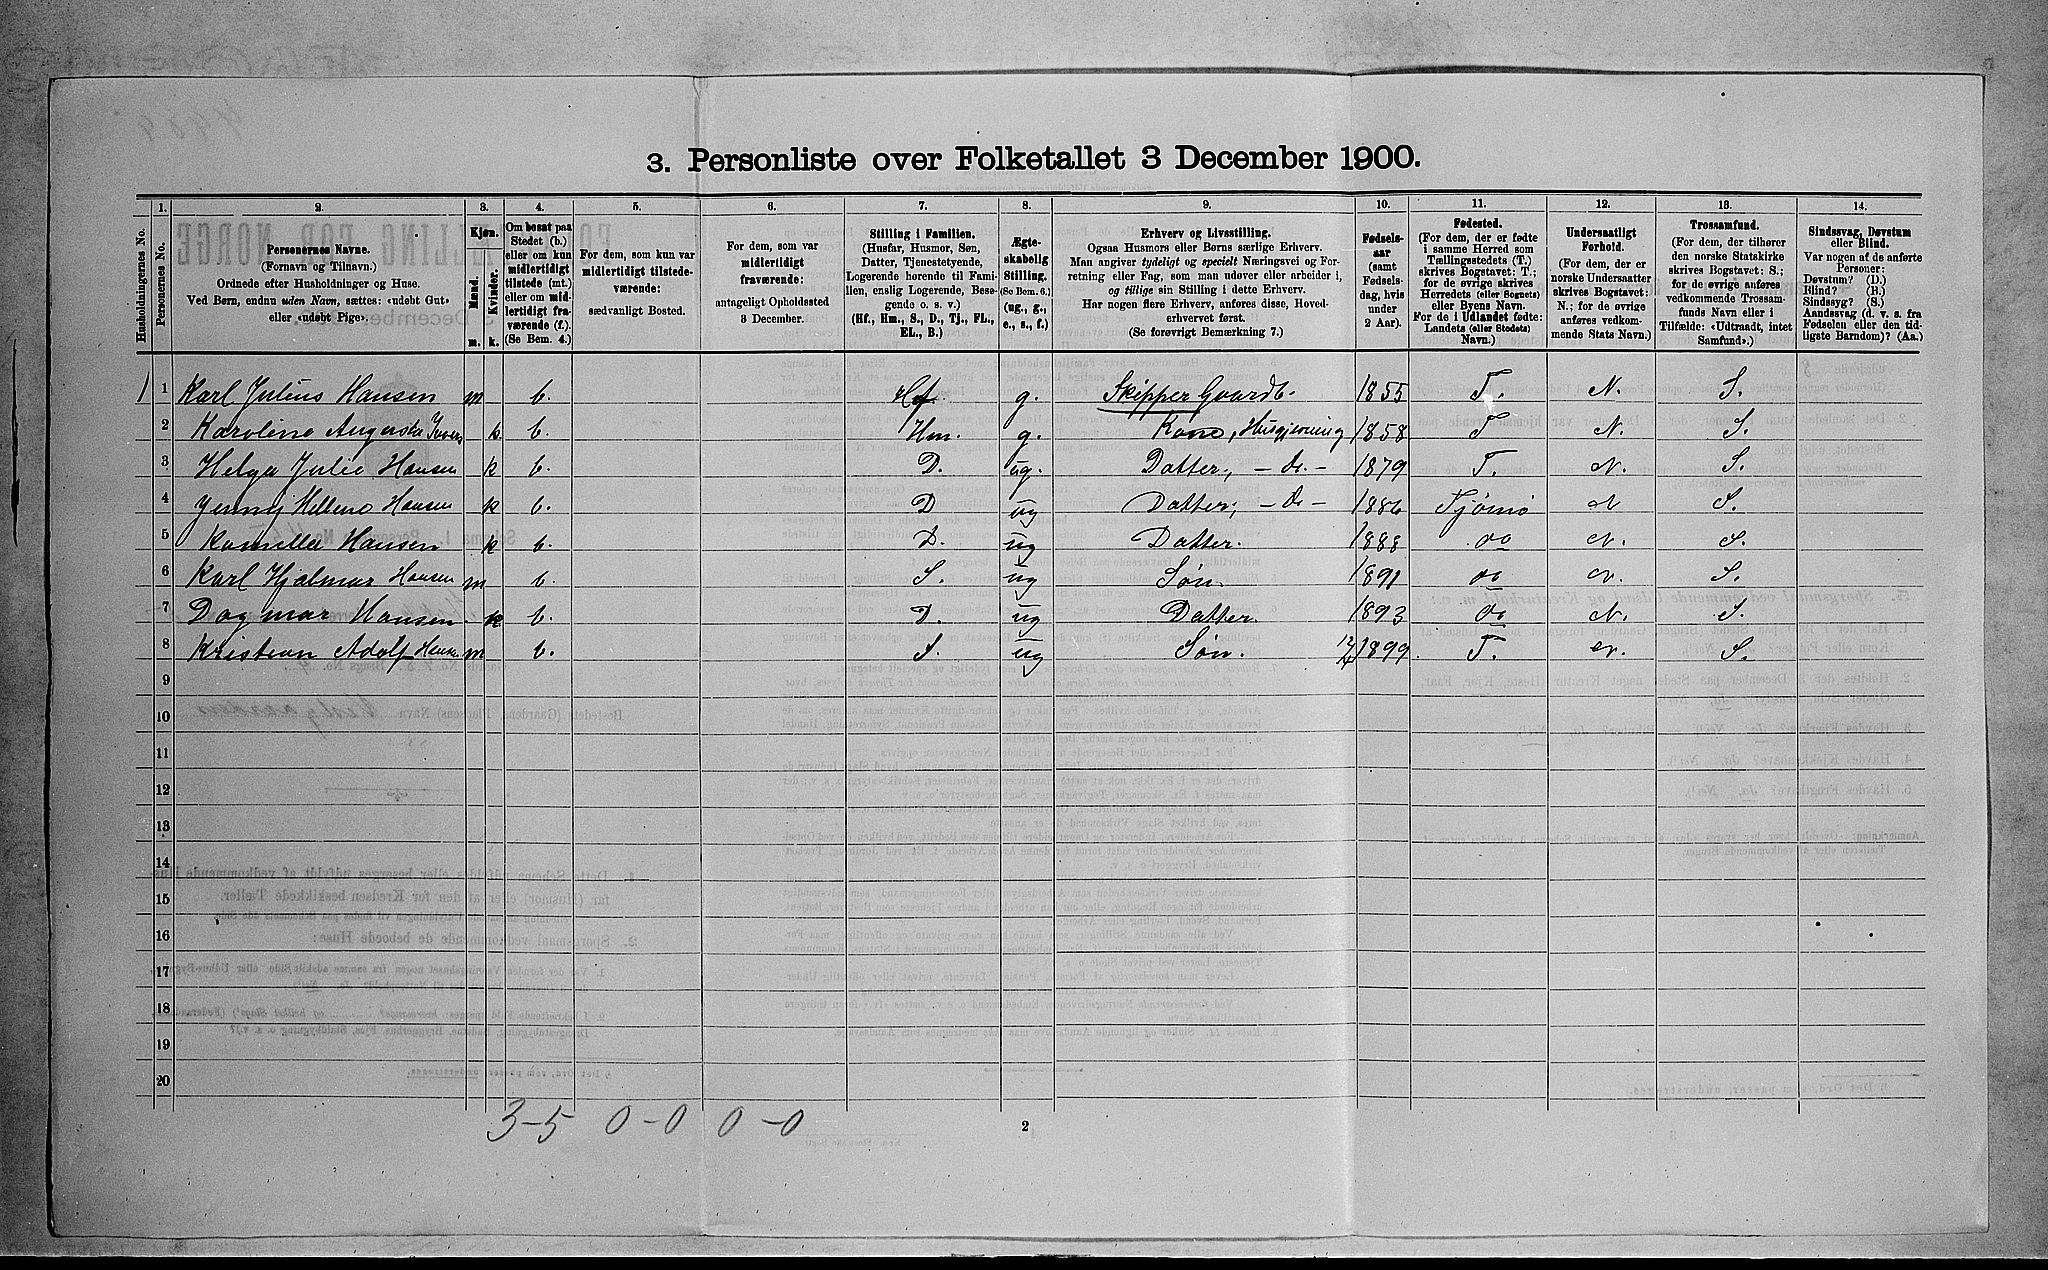 3. Personliste over Folketallet 3 December 1900.
Husholdningernes No.
1.
Personernes No.
2.
Personernes Navne.
(Fornavn og Tilnavn.)
Ordnede efter Husholdninger og Huse.
Ved Børn, endnu uden Navn, sættes: «udøbt Gut»
eller «udøbt Pige».
3.
Kjøn.
Mænd.
Kvinder.
m. k.
4.
Om bosat paa
Stedet (b.)
eller om kun
midlertidigt
tilstede (mt.)
eller om mid-
lertidigt fra-
værende (f.).
(Se Bem. 4.)
5.
For dem, som kun var
midlertidigt tilstede-
værende:
sædvanligt Bosted.
6.
For dem, som var
midlertidigt
fraværende:
antageligt Opholdssted
3 December.
7.
Stilling i Familien.
(Husfar, Husmor, Søn,
Datter, Tjenestetyende,
Logerende hørende til Fami-
lien, enslig Logerende, Besø-
gende o. s. v.)
(Hf., Hm., S., D., Tj., FL.,
EL., B.)
8.
Ægte-
skabelig
Stilling.
(Se Bem. 6.)
(ug., g.,
e., s., f.)
9.
Erhverv og Livsstilling.
Ogsaa Husmors eller Børns særlige Erhverv.
Man angiver tydeligt og specielt Næringsvei og For-
retning eller Fag, som man udøver eller arbeider i,
og tillige sin Stilling i dette Erhverv.
Har nogen flere Erhverv, anføres disse, Hoved-
erhvervet først.
(Se forøvrigt Bemærkning 7.)
10.
Fødsels-
aar
(samt
Fødsels-
dag, hvis
under
2 Aar).
11.
Fødested.
(For dem, der er fødte
i samme Herred som
Tællingsstedets (T.)
skrives Bogstavet: T.;
for de øvrige skrives
Herredets (eller Sognets)
eller Byens Navn.
For de i Udlandet fødte:
Landets (eller Stedets)
Navn.)
12.
Undersaatligt
Forhold.
(For dem, der er
norske Undersaatter
skrives Bogstavet:
N.; for de øvrige
anføres vedkom-
mende Stats Navn.)
13.
Trossamfund.
(For dem, der tilhører
den norske Statskirke
skrives Bogstavet: S.;
for de øvrige anføres
vedkommende Trossam-
funds Navn eller i
Tilfælde: «Udtraadt, intet
Samfund».)
14.
Sindssvag, Døvstum
eller Blind.
Var nogen af de anførte
Personer:
Døvstum? (D.)
Blind? (B.)
Sindssyg? (S.)
Aandssvag (d. v. s. fra
Fødselen eller den tid-
ligste Barndom)? (Aa.)
1 1 Karl Julius Hansen m b. Hf. g. Skipper Gaardb. 1855 T. N. S.
2 Karoline Augusta k b. Hm. g. Kone, Husgjerning 1858 T N. S.
3 Helga Julie Hansen k b. D. ug. Datter, - do - 1879 T. N. S.
4 Jenny Hellene Hansen k b. D ug Datter, - do - 1886 Tjømø N S.
5 Kamilla Hansen k b. D. ug Datter. 1888 do N. S.
6 Karl Hjalmar Hansen m b. S. ug Søn. 1891 do N. S.
7 Dagmar Hansen k b. D. ug Datter. 1893 do N. S.
8 Kristian Adolf Hansen m b. S. ug Søn. 1899. T. N. S.
9
10
11
12
13
14
15
16
17
18
19
20
3-5 0-0 0-0
2